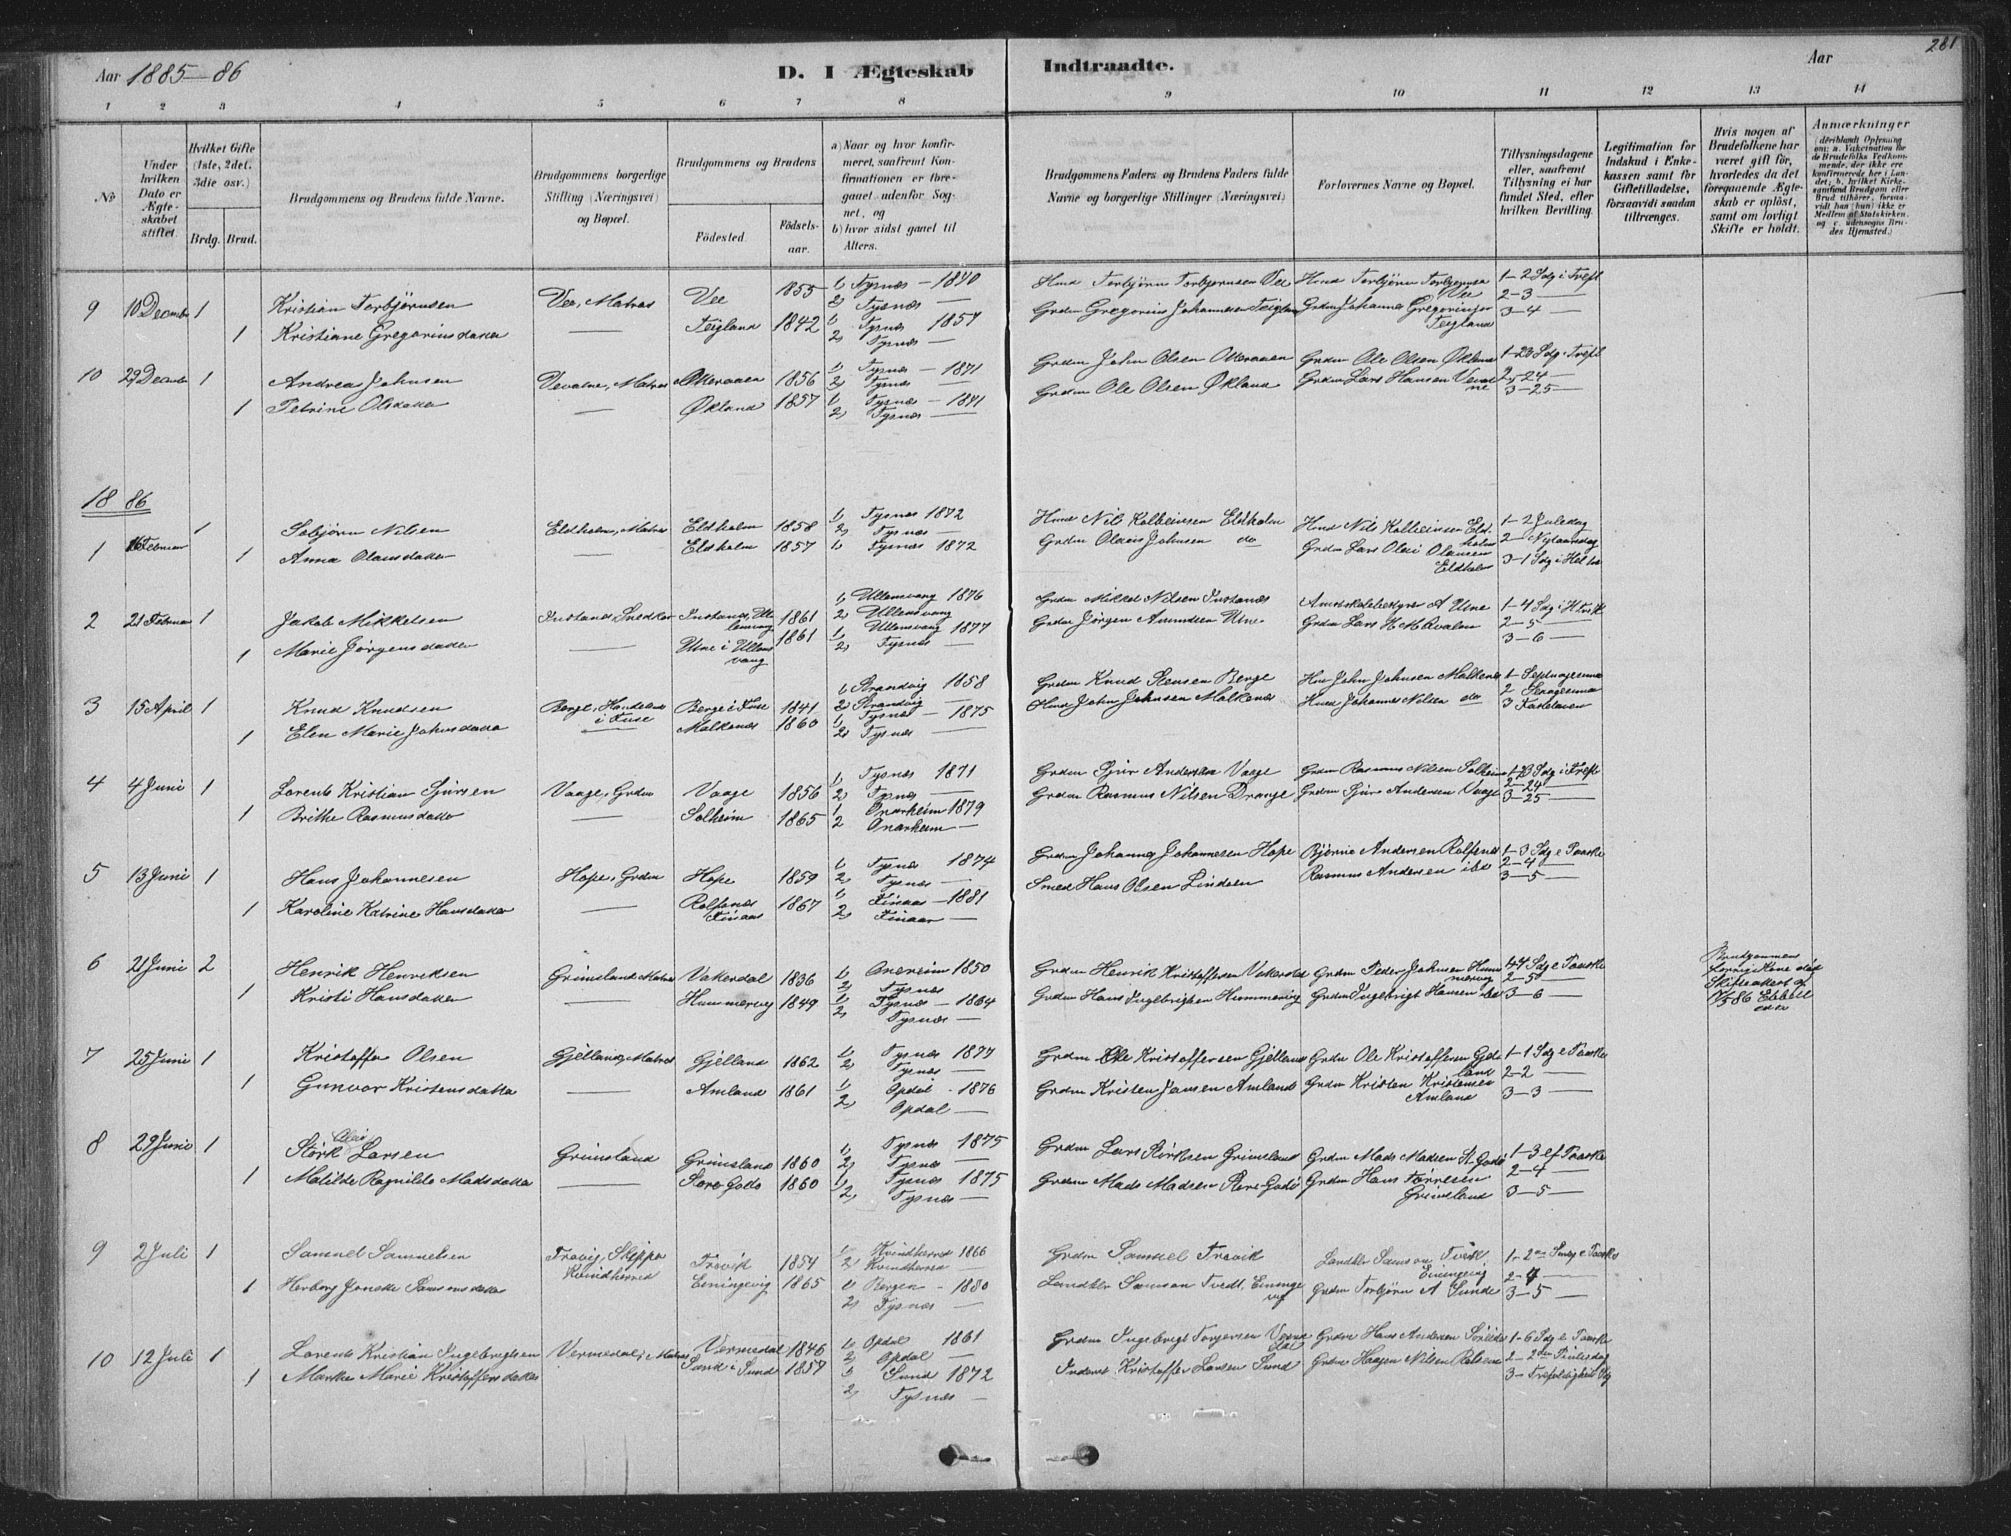 281
Aar 1885-86 D. I Ægteskab Indtraadte. Aar
1 2 3 4 5 6 7 8 9 10 11 12 13 14
No
Under hvilken Dato er Ægteskabet stiftet.
Hvilket Gifte (1ste, 2det. 3die osv.)
Brdg. Brud.
Brudgommens og Brudens fulde Navne.
Brudgommens borgerlige Stilling (Næringsvei) og Bopæl.
Brudgommens og Brudens
Fødested Fødselsaar.
a) Naar og hvor konfirmeret, saafremt Konfirmationen er foregaaet udenfor Sognet, og
b) hvor sidst gaaet til Alters.
Brudgommens Faders og Brudens Faders fulde Navne og borgerlige Stillinger (Næringsvei)
Forlovernes Navne og Bopæl.
Tillysningsdagene eller, saafremt Tillysning ei har fundet Sted, efter hvilken Bevilling.
Legitimation for Indskud i Enkekassen samt for Giftetilladelse, forsaavidt saadan tiltrænges.
Hvis nogen af Brudefolkene har været gift før, hvorledes da det foregaaende Ægteskab er opløst, samt om lovligt Skifte er holdt.
Anmærkninger
9 10 Decembr 1 Kristian Torbjørnsen Vee, Matros Vee 1855 1) Tysnæs - 1840 2) Tysnæs — Hmd Torbjørn Torbjørnsen Vee Hmd Torbjørn Torbjørnsen Vee 1-2 Sdg i Trefl 2-3 — 3-4 —
1 Kristiane Gregoriusdatter — Teigland 1842 1) Tysnæs 1857 2) Tysnæs — Grdm Gregorius Johannesen Teigland Grdm Johannes Gregoriusen Teigland
10 29 Decembr 1 Andreas Johnsen Matros 1856 1) Tysnæs - 1871 2) Tysnæs — Grdm John Olsen Grdm Ole Olsen Økland 1-23 Sdg i Trefl 2-24 — 3-25 —
1 Petrine Olsdatter — Økland 1857 1) Tysnæs - 1871 2) Tysnæs — Grdm Ole Olsen Økland Grdm Lars Hansen
1886
1 16 Februar 1 Sebjørn Nilsen Eldholm, Matros Eldholm 1858 1) Tysnæs 1872 2) Tysnæs — Hmd Nils Kolbeinsen Eldholm Hmd Nils Kolbeinsen Eldholm 1-2 Juledag 2- Nytaarsdag 3-1 Sdg i Hel
1 Anna Olausdatter — Eldholm 1857 1) Tysnæs 1872 Grdm Olaus Johnsen do Grdm Lars Olai Olausen Eldholm
2 21 Februar 1 Jakob Mikkelsen Instanes, Snedker Instanes, Ullensvang 1861 1) Ullensvang 1876 2) Ullensvang Grdm Mikkel Nilsen Instanes A Utne 1-4 Sdg i 2-5 — 3-6 —
1 Marie Jørgensdatter — Utne i Ullensvang 1861 1) Ullensvang 1877 2) Tysnæs — Grdm Jørgen Amundsen Utne Grdm Lars H
3 15 April 1 Knud Knudsen Berge, i Fuse Berge i Fuse 1841 1) Strandvig 1858 2) Strandvig Grdm Knud Stensen Berge Hmd John Johnsen Malkenes 1- Septuagesima 2 Sexagesima 3 Fastelaven
1 Elen Marie Johnsdatter — Malkenes 1860 1) Tysnæs - 1875 2) Tysnæs — Hmd John Johnsen Malkenes Hmd Johannes Nilsen do
4 4 Juni 1 Lorents Kristian Sjursen Vaage, Grdm Vaage 1856 1) Tysnæs 1871 2) Tysnæs — Grdm Sjur Andersen Vaage Grdm Rasmus Nilsen Solheim 1-23 Sdg i Trefl 2-24 — 3-25 —
1 Brithe Rasmusdatter — Solheim 1865 1 Onarheim 1879 2 Onarheim — Grdm Rasmus Nilsen Drange Grdm Sjur Andersen Vaage
5 13 Juni 1 Hans Johannesen Hope, Grdm Hope 1859 1) Tysnæs 1874 2) Tysnæs — Grdm Johannes Johannesen Hope Bjørne Andersen Rolfsnes 1-3 Sdg e Paaske 2-4 — 3-5 —
1 Karoline Katrine Hansdatter — Rolfsnes Finaas 1867 1) Finaas - 1881 2) Finaas — Smed Hans Olsen Lindøen Rasmus Andersen ibd
6 21 Juni 2 Henrik Henriksen Grimsland, Matros Vakerdal 1836 1) Onareim 1850 2) Tysnæs Grdm Henrik Kristoffersen Vakerdal Grdm Peder Johnsen Hummervig 1-4 Sdg e Paaske 2-5 — 3-6 — Brudgommens forrige Kone død Skifteattest af 1/5 86
1 Kristi Hansdatter — Hummervig 1849 1) Tysnæs - 1864 2) Tysnæs — Grdm Hans Ingebrigtsen Hummervig Grdm Ingebrigt Hansen ibd
7 25 Juni 1 Kristoffer Olsen Gjelland, Matros Gjelland 1862 1) Tysnæs 1877 2) Tysnæs — Grdm Ole Kristoffersen Gjelland Grdm Ole Kristoffersen Gjelland 1-1 Sdg e Paaske 2-2 — 3-3 —
1 Gunvor Kristensdatter — Amland 1861 1) Opdal - 1876 2) Opdal — Grdm Kristen Jansen Amland Grdm Kristen Kristensen Amland
8 29 Juni 1 Størk Olai Larsen Grimsland Grimsland 1860 1) Tysnæs 1875 2) Tysnæs — Grdm Lars Størksen Grimsland Grdm Mads Madsen St. Godø 1-3 ef Paaske 2-4 — 3-5 —
1 Matilde Ragnilde Madsdatter — Store Godø 1860 1) Tysnæs 1875 2) Tysnæs — Grdm Mads Madsen Store-Godø Grdm Hans Tørresen Grimsland
9 2 Juli 1 Samuel Samuelsen Trovig, Skipper Kvindherred Trovik 1854 1) Kvindherred 1866 2) Kvindherred — Grdm Samuel Trovik Landhdlr Samson Tvedt Einingevig 1-2en Sndg e Paaske 2-4 — 3-5 —
1 Herborg Jonette Samsonsdatter Einingevig 1865 1) Bergen - 1880 2) Tysnæs — Landhdlr Samson Tvedt, Einingevig Grdm Torbjørn A Sunde
10 12 Juli 1 Lorents Kristian Ingebrigtsen Vermedal, Matros Vermedal 1846 1) Opdal 1861 2) Opdal — Grdm Ingebrigt Torgersen Vermedal Grdm Hans Andersen 1-6 Sdg e Paaske 2-2den Pintsedag 3- Trefoldigheds Sdg
1 Marthe Marie Kristoffersdatter Sund i Sund 1857 1) Sund 1872 2) Tysnæs — Inderst Kristoffer Larsen Sund Grdm Haagen Nilsen